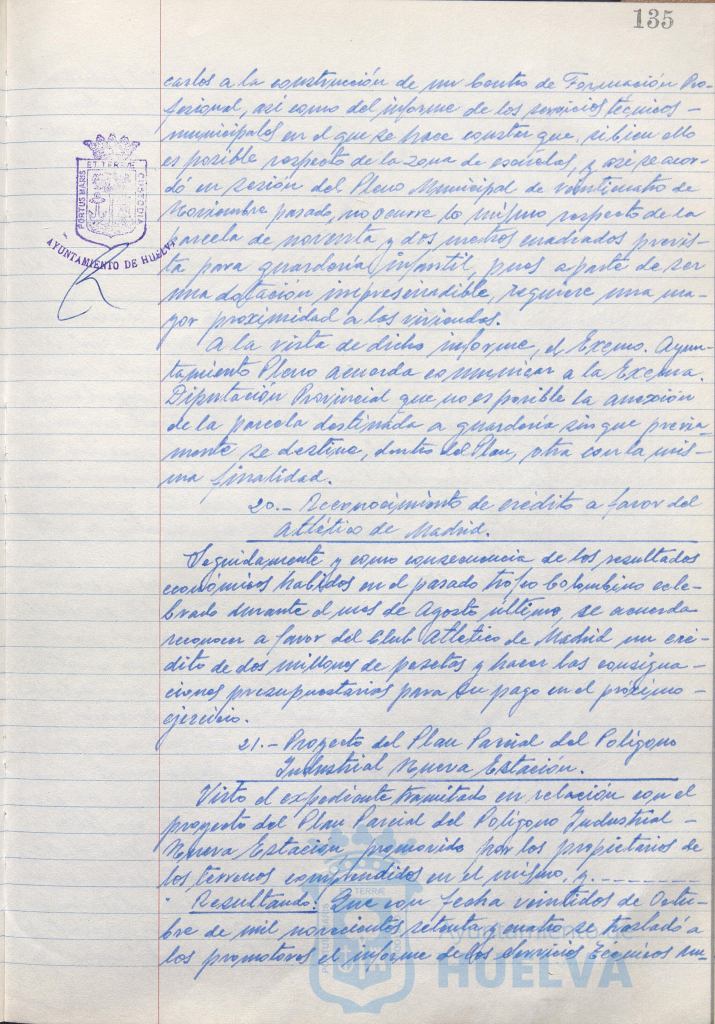 135
carlos a la construcción de un Centro de Formación Pro-
fesional, así como del informe de los servicios técnicos -
municipales en el que se hace constar que, si bien ello
es posible respecto de la zona de escuelas, y así se acor-
dó en sesión del Pleno Municipal de veinticuatro de
Noviembre pasado, no ocurre lo mismo respecto de la
parcela de noventa y dos metros cuadrados previs-
ta para guardería infantil, pues aparte de ser
una dotación imprescindible, requiere una ma-
yor proximidad a las viviendas.
A la vista de dicho informe, el Excmo. Ayun-
tamiento Pleno acuerda comunicar a la Excma.
Diputación Provincial que no es posible la anexión
de la parcela destinada a guardería sin que previa-
mente se destine, dentro del Plan, otra con la mis-
ma finalidad.
20.- Reconocimiento de crédito a favor del
Atlético de Madrid.
Seguidamente y como consecuencia de los resultados
económicos habidos en el pasado trofeo Colombino cele-
brado durante el mes de Agosto último, se acuerda
reconocer a favor del Club Atlético de Madrid un cré-
dito de dos millones de pesetas y hacer las consigna-
ciones presupuestarias para su pago en el próximo -
ejercicio.
21.- Proyecto del Plan Parcial del Polígono
Industrial Nueva Estación.
Visto el expediente tramitado en relación con el
proyecto del Plan Parcial del Polígono Industrial -
Nueva Estación promovido por los propietarios de
los terrenos comprendidos en el mismo, y
Resultando: Que con fecha veintidos de Octu-
bre de mil novecientos setenta y cuatro se trasladó a
los promotores el informe de los Servicios Técnicos Mu-
PORTUS MARIS
ET TERRÆ
CUSTODIA
AYUNTAMIENTO DE HUELVA
PORTUS MARIS
ET TERRÆ
HUELVA